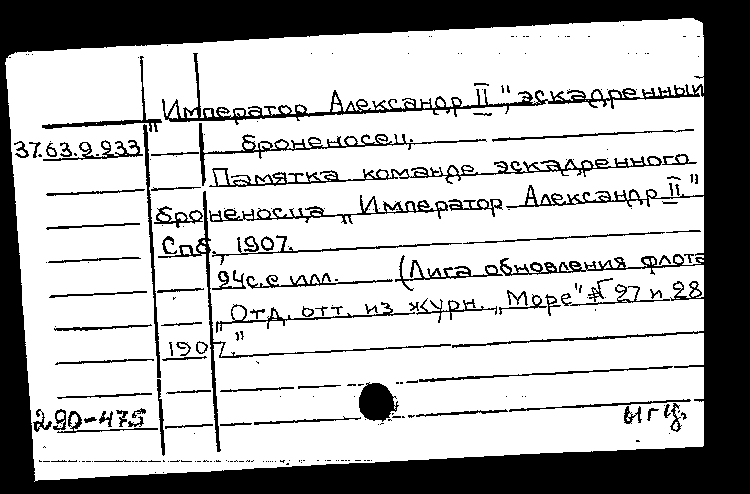 „Император Александр II", эскадренный
37.63.9.233 броненосец.
Памятка команде эскадренного
броненосца „Император Александр II"
Спб., 1907.
94с. с илл. (Лига обновления флота
„Отд. отт. из журн. „Море" № 27 и 28
1907."
2.90-475